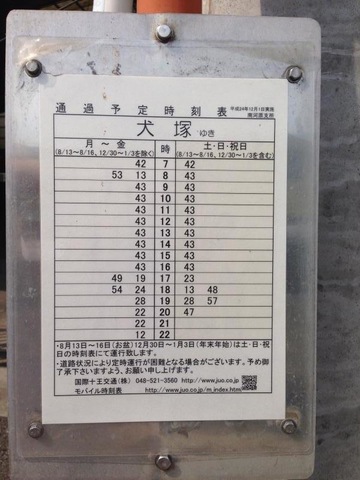 通過予定時刻表 平成24年12月1日実施
南河原支所
犬塚 ゆき
月～金 時 土・日・祝日
(8/13～8/16、12/30～1/3を除く) (8/13～8/16、12/30～1/3を含む)
42 7 42
53 13 8 43
43 9 43
43 10 43
43 11 43
43 12 43
43 13 43
43 14 43
43 15 43
43 16 43
49 19 17 23
54 24 18 13 48
28 19 28 57
22 20 47
22 21
12 22
・8月13日～16日(お盆)12月30日～1月3日(年末年始)は土・日・祝
日の時刻表にて運行致します。
・道路状況により定時運行が困難となる場合がございます。予め御
了承下さいますよう、お願い申し上げます。
国際十王交通(株) 048-521-3560 http://www.juo.co.jp
モバイル時刻表 http://www.juo.co.jp/m_index.htm